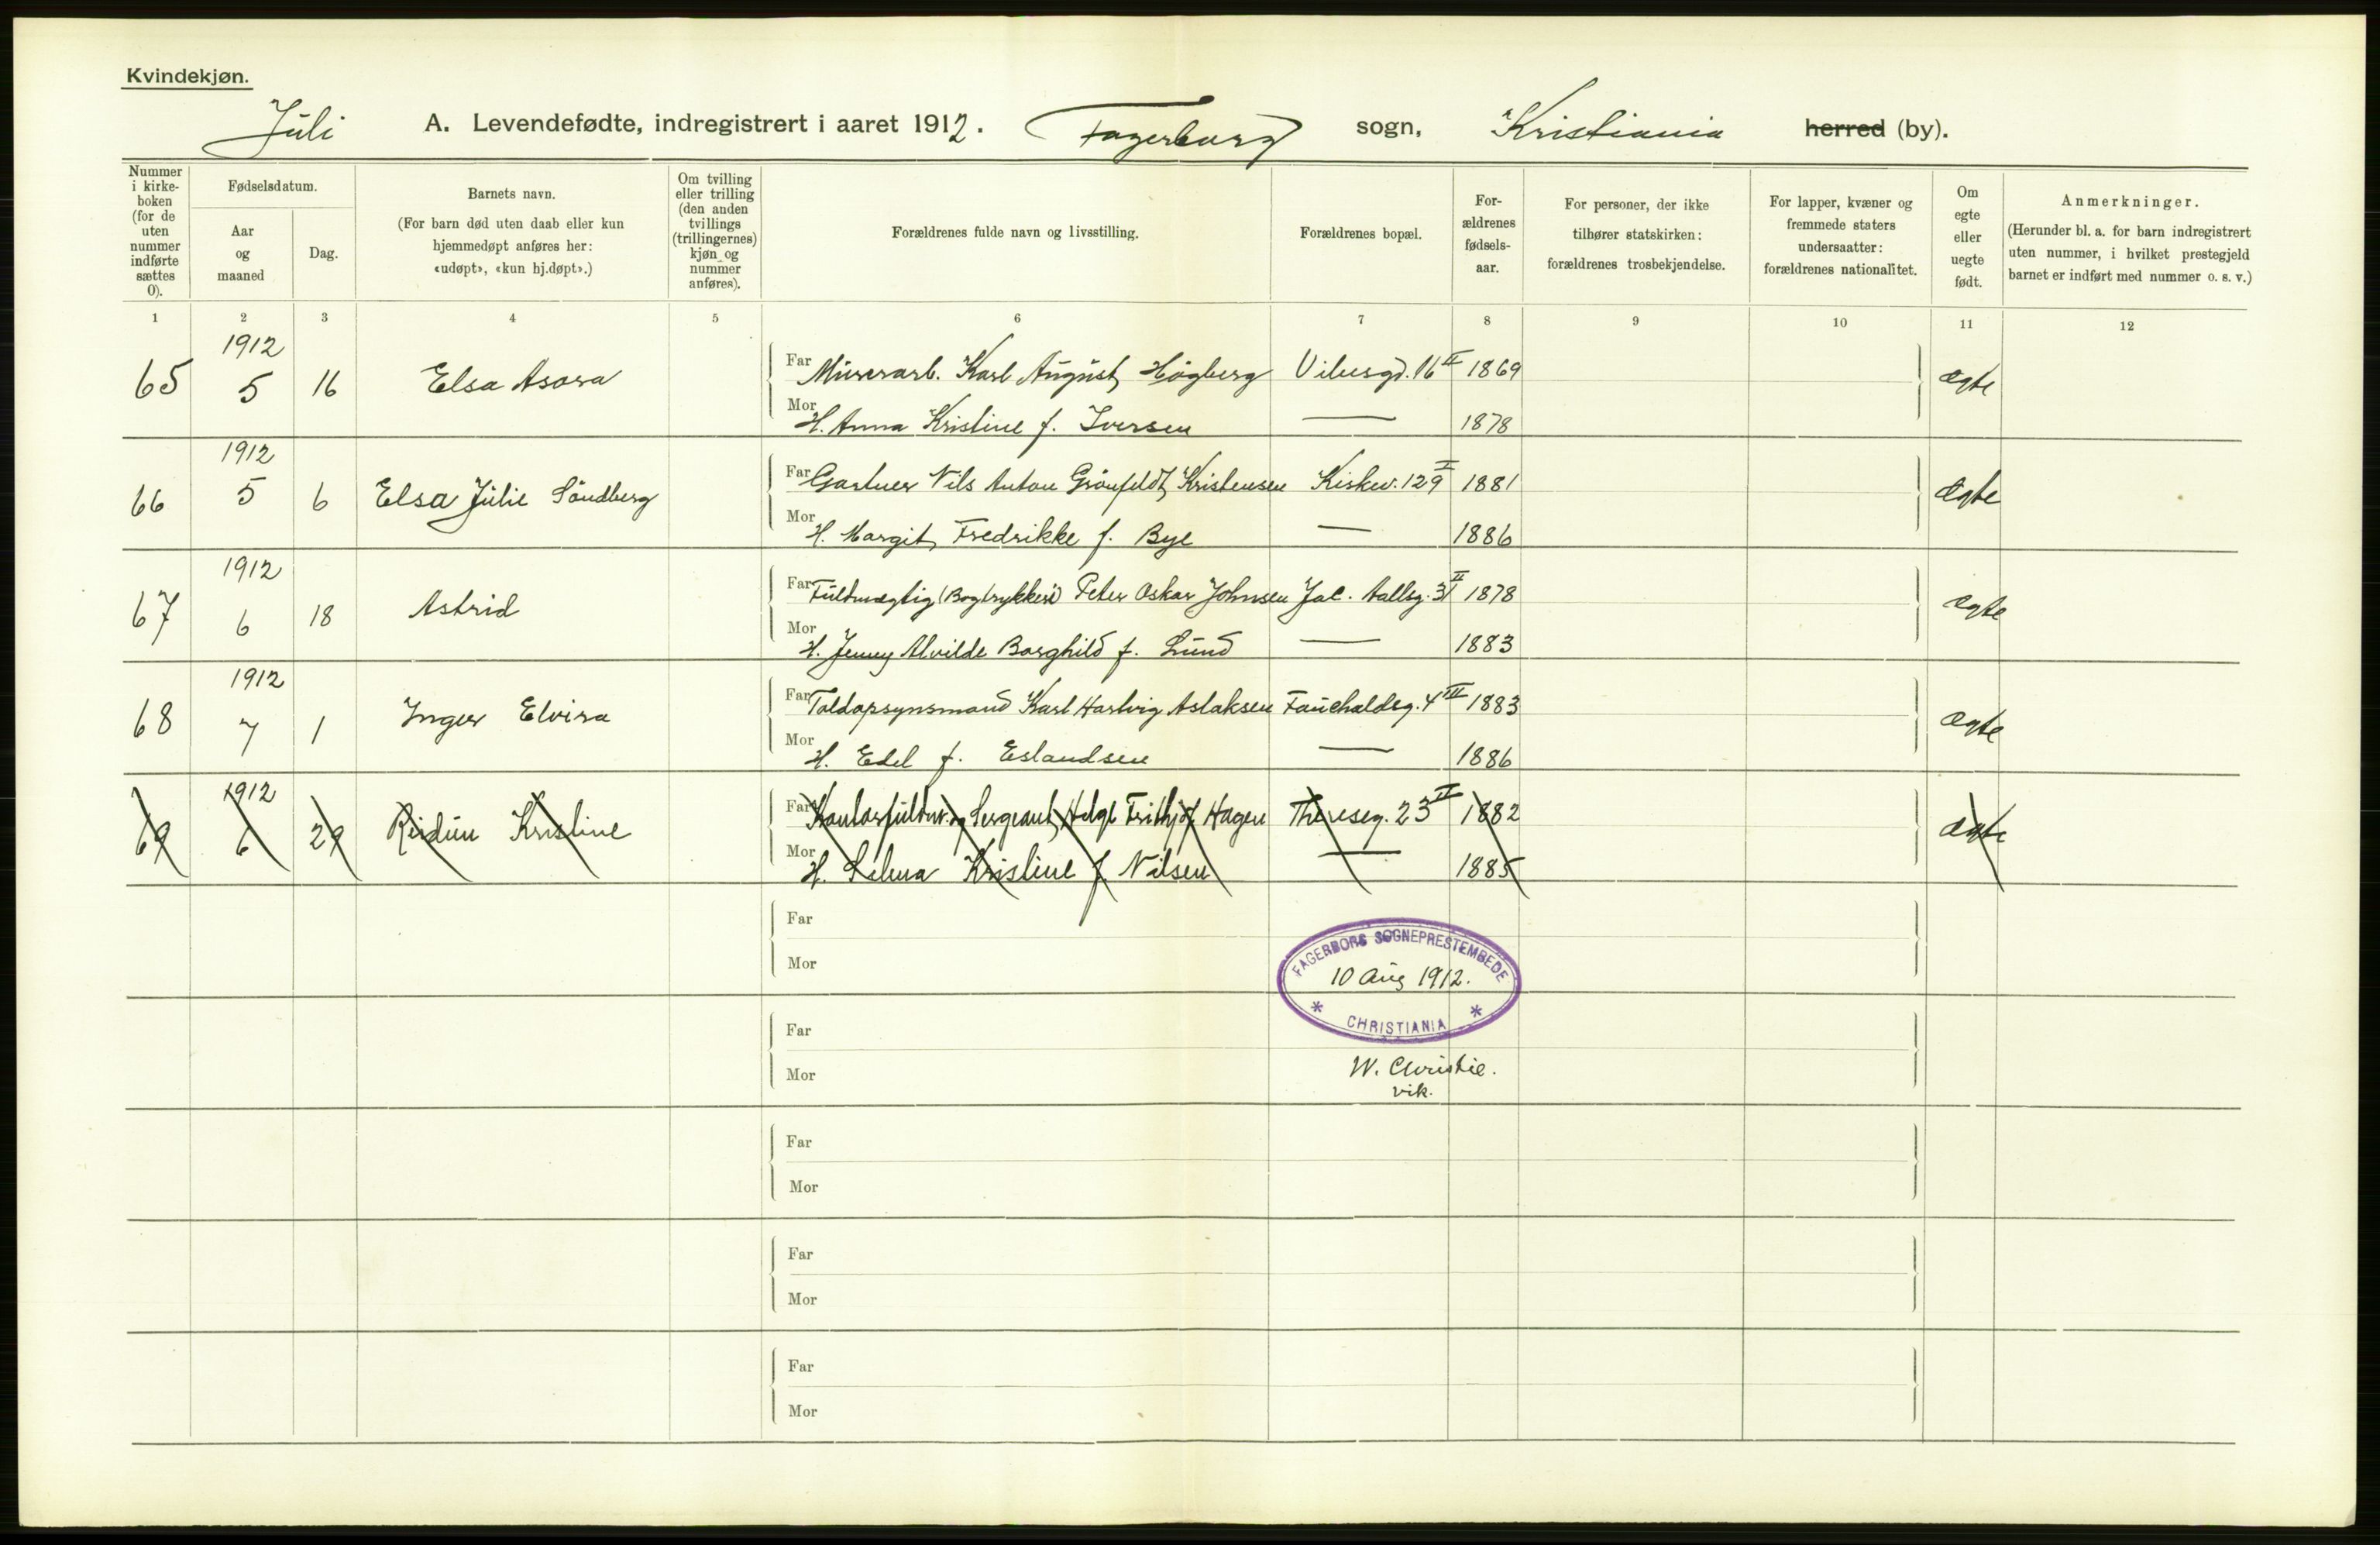 Kvindekjøn.
Juli A. Levendefødte, indregistrert i aaret 1912. Fagerborg sogn, Kristiania herred (by).
Nummer i kirkeboken (for de uten nummer indførte sættes 0).
Fødselsdatum.
Aar og maaned
Dag.
Barnets navn.
(For barn død uten daab eller kun hjemmedøpt anføres her: «udøpt», «kun hj.døpt».)
Om tvilling eller trilling (den anden tvillings (trillingernes) kjøn og nummer anføres).
Forældrenes fulde navn og livsstilling.
Forældrenes bopæl.
For-ældrenes fødsels-aar.
For personer, der ikke tilhører statskirken: forældrenes trosbekjendelse.
For lapper, kvæner og fremmede staters undersaatter: forældrenes nationalitet.
Om egte eller uegte født.
Anmerkninger.
(Herunder bl. a. for barn indregistrert uten nummer, i hvilket prestegjeld barnet er indført med nummer o. s. v.)
1 2 3 4 5 6 7 8 9 10 11 12
65 1912 5 16 Elsa Asora Far Murerarb. Karl August Högberg Vibesgd. 16 II 1869 ægte
Mor H. Anna Kristine f. Iversen — 1878
66 1912 5 6 Elsa Julie Söndberg Far Gartner Nils Anton Grönfeldt Kristensen Kirkev. 129 I 1881 ægte
Mor H. Margit Fredrikke f. Bye — 1886
67 1912 6 18 Astrid Far Fuldmægtig (Bogtrykkeri) Peter Oskar Johnsen Jac. Aallsg. 31 II 1878 ægte
Mor H. Jenny Alvilde Borghild f. Lund — 1883
68 1912 7 1 Inger Elvira Far Toldopsynsmand Karl Hartvig Aslaksen Fauchaldsg. 4 III 1883 ægte
Mor H. Edel f. Eslandsen — 1886
69 1912 6 29 Reidun Kristine Far Kontorfuldm. og Sergeant Helge Frithjof Hagen Thereseg. 23 II 1882 ægte
Mor H. Selma Kristine f. Nilsen — 1885
Far
Mor
FAGERBORG SOGNEPRESTEMBEDE
10 Aug 1912.
* CHRISTIANIA *
Far
Mor
W. Christie.
vik.
Far
Mor
Far
Mor
Far
Mor